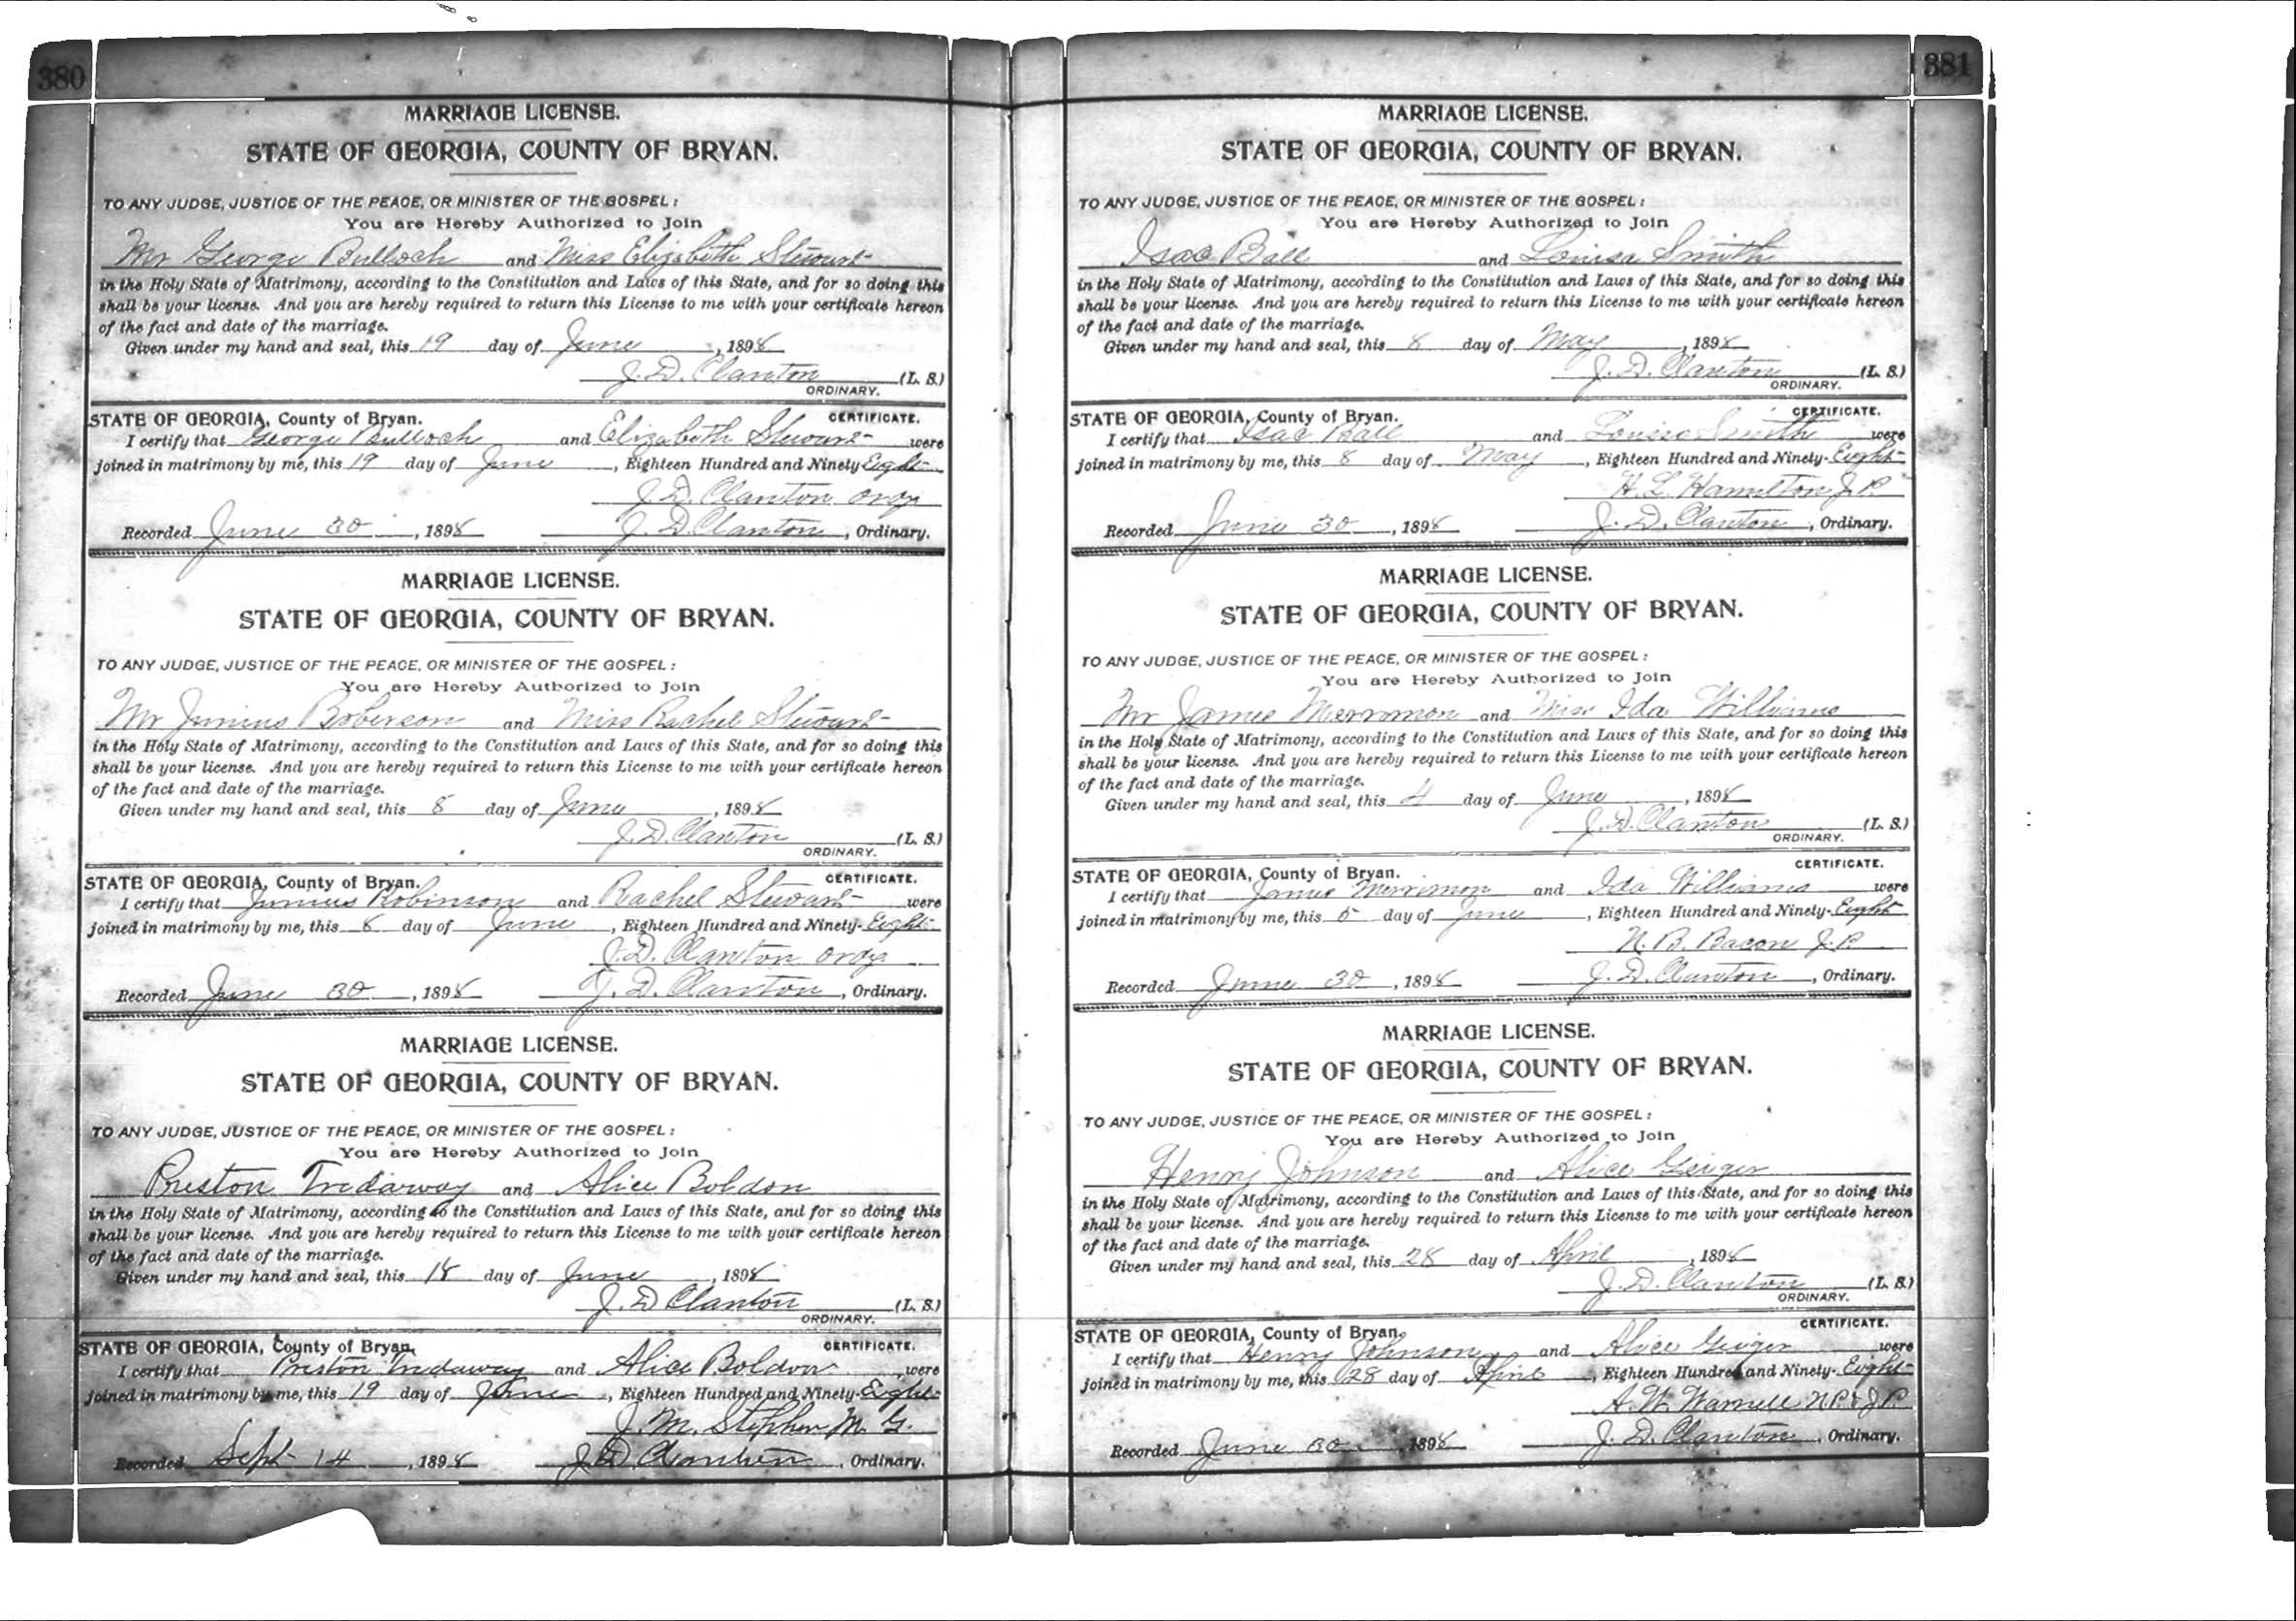 380
MARRIAGE LICENSE.
STATE OF GEORGIA, COUNTY OF BRYAN.
TO ANY JUDGE, JUSTICE OF THE PEACE, OR MINISTER OF THE GOSPEL:
You are Hereby Authorized to Join
Mr George Bulloch and Miss Elizabeth Stewart
in the Holy State of Matrimony, according to the Constitution and Laws of this State, and for so doing this
shall be your license. And you are hereby required to return this License to me with your certificate hereon
of the fact and date of the marriage.
Given under my hand and seal, this 19 day of June, 1898
J. D. Clanton (L. S.)
ORDINARY.
STATE OF GEORGIA, County of Bryan. CERTIFICATE.
I certify that George Bulloch and Elizabeth Stewart were
joined in matrimony by me, this 19 day of June, Eighteen Hundred and Ninety-Eight
J. D. Clanton Ordy
Recorded June 30, 1898 J. D. Clanton, Ordinary.
MARRIAGE LICENSE.
STATE OF GEORGIA, COUNTY OF BRYAN.
TO ANY JUDGE, JUSTICE OF THE PEACE, OR MINISTER OF THE GOSPEL:
You are Hereby Authorized to Join
Mr Junius Roberson and Miss Rachel Stewart
in the Holy State of Matrimony, according to the Constitution and Laws of this State, and for so doing this
shall be your license. And you are hereby required to return this License to me with your certificate hereon
of the fact and date of the marriage.
Given under my hand and seal, this 8 day of June, 1898
J. D. Clanton (L. S.)
ORDINARY.
STATE OF GEORGIA, County of Bryan. CERTIFICATE.
I certify that Junius Robinson and Rachel Stewart were
joined in matrimony by me, this 8 day of June, Eighteen Hundred and Ninety-Eight
J. D. Clanton Ordy
Recorded June 30, 1898 J. D. Clanton, Ordinary.
MARRIAGE LICENSE.
STATE OF GEORGIA, COUNTY OF BRYAN.
TO ANY JUDGE, JUSTICE OF THE PEACE, OR MINISTER OF THE GOSPEL:
You are Hereby Authorized to Join
Preston Tredaway and Alice Boldon
in the Holy State of Matrimony, according to the Constitution and Laws of this State, and for so doing this
shall be your license. And you are hereby required to return this License to me with your certificate hereon
of the fact and date of the marriage.
Given under my hand and seal, this 18 day of June, 1898
J. D Clanton (L. S.)
ORDINARY.
STATE OF GEORGIA, County of Bryan. CERTIFICATE.
I certify that Preston Tredaway and Alice Boldon were
joined in matrimony by me, this 19 day of June, Eighteen Hundred and Ninety-Eight
J. M. Stephen M. G.
Recorded Sept 14, 1898 J D Clanton, Ordinary.
381
MARRIAGE LICENSE.
STATE OF GEORGIA, COUNTY OF BRYAN.
TO ANY JUDGE, JUSTICE OF THE PEACE, OR MINISTER OF THE GOSPEL:
You are Hereby Authorized to Join
Isac Ball and Louisa Smith
in the Holy State of Matrimony, according to the Constitution and Laws of this State, and for so doing this
shall be your license. And you are hereby required to return this License to me with your certificate hereon
of the fact and date of the marriage.
Given under my hand and seal, this 8 day of May, 1898
J. D. Clanton (L. S.)
ORDINARY.
STATE OF GEORGIA, County of Bryan. CERTIFICATE.
I certify that Isac Ball and Louisa Smith were
joined in matrimony by me, this 8 day of May, Eighteen Hundred and Ninety-Eight
H. L. Hamilton J. P.
Recorded June 30, 1898 J. D. Clanton, Ordinary.
MARRIAGE LICENSE.
STATE OF GEORGIA, COUNTY OF BRYAN.
TO ANY JUDGE, JUSTICE OF THE PEACE, OR MINISTER OF THE GOSPEL:
You are Hereby Authorized to Join
Mr James Merromon and Miss Ida Williams
in the Holy State of Matrimony, according to the Constitution and Laws of this State, and for so doing this
shall be your license. And you are hereby required to return this License to me with your certificate hereon
of the fact and date of the marriage.
Given under my hand and seal, this 4 day of June, 1898
J. D. Clanton (L. S.)
ORDINARY.
STATE OF GEORGIA, County of Bryan. CERTIFICATE.
I certify that James Merrimon and Ida Williams were
joined in matrimony by me, this 5 day of June, Eighteen Hundred and Ninety-Eight
N. B. Bacon J. P.
Recorded June 30, 1898 J. D. Clanton, Ordinary.
MARRIAGE LICENSE.
STATE OF GEORGIA, COUNTY OF BRYAN.
TO ANY JUDGE, JUSTICE OF THE PEACE, OR MINISTER OF THE GOSPEL:
You are Hereby Authorized to Join
Henry Johnson and Alice Geiger
in the Holy State of Matrimony, according to the Constitution and Laws of this State, and for so doing this
shall be your license. And you are hereby required to return this License to me with your certificate hereon
of the fact and date of the marriage.
Given under my hand and seal, this 28 day of April, 1898
J. D. Clanton (L. S.)
ORDINARY.
STATE OF GEORGIA, County of Bryan. CERTIFICATE.
I certify that Henry Johnson and Alice Geiger were
joined in matrimony by me, this 28 day of April, Eighteen Hundred and Ninety-Eight
A. W. Warnell N. P. & J. P.
Recorded June 30, 1898 J. D. Clanton, Ordinary.